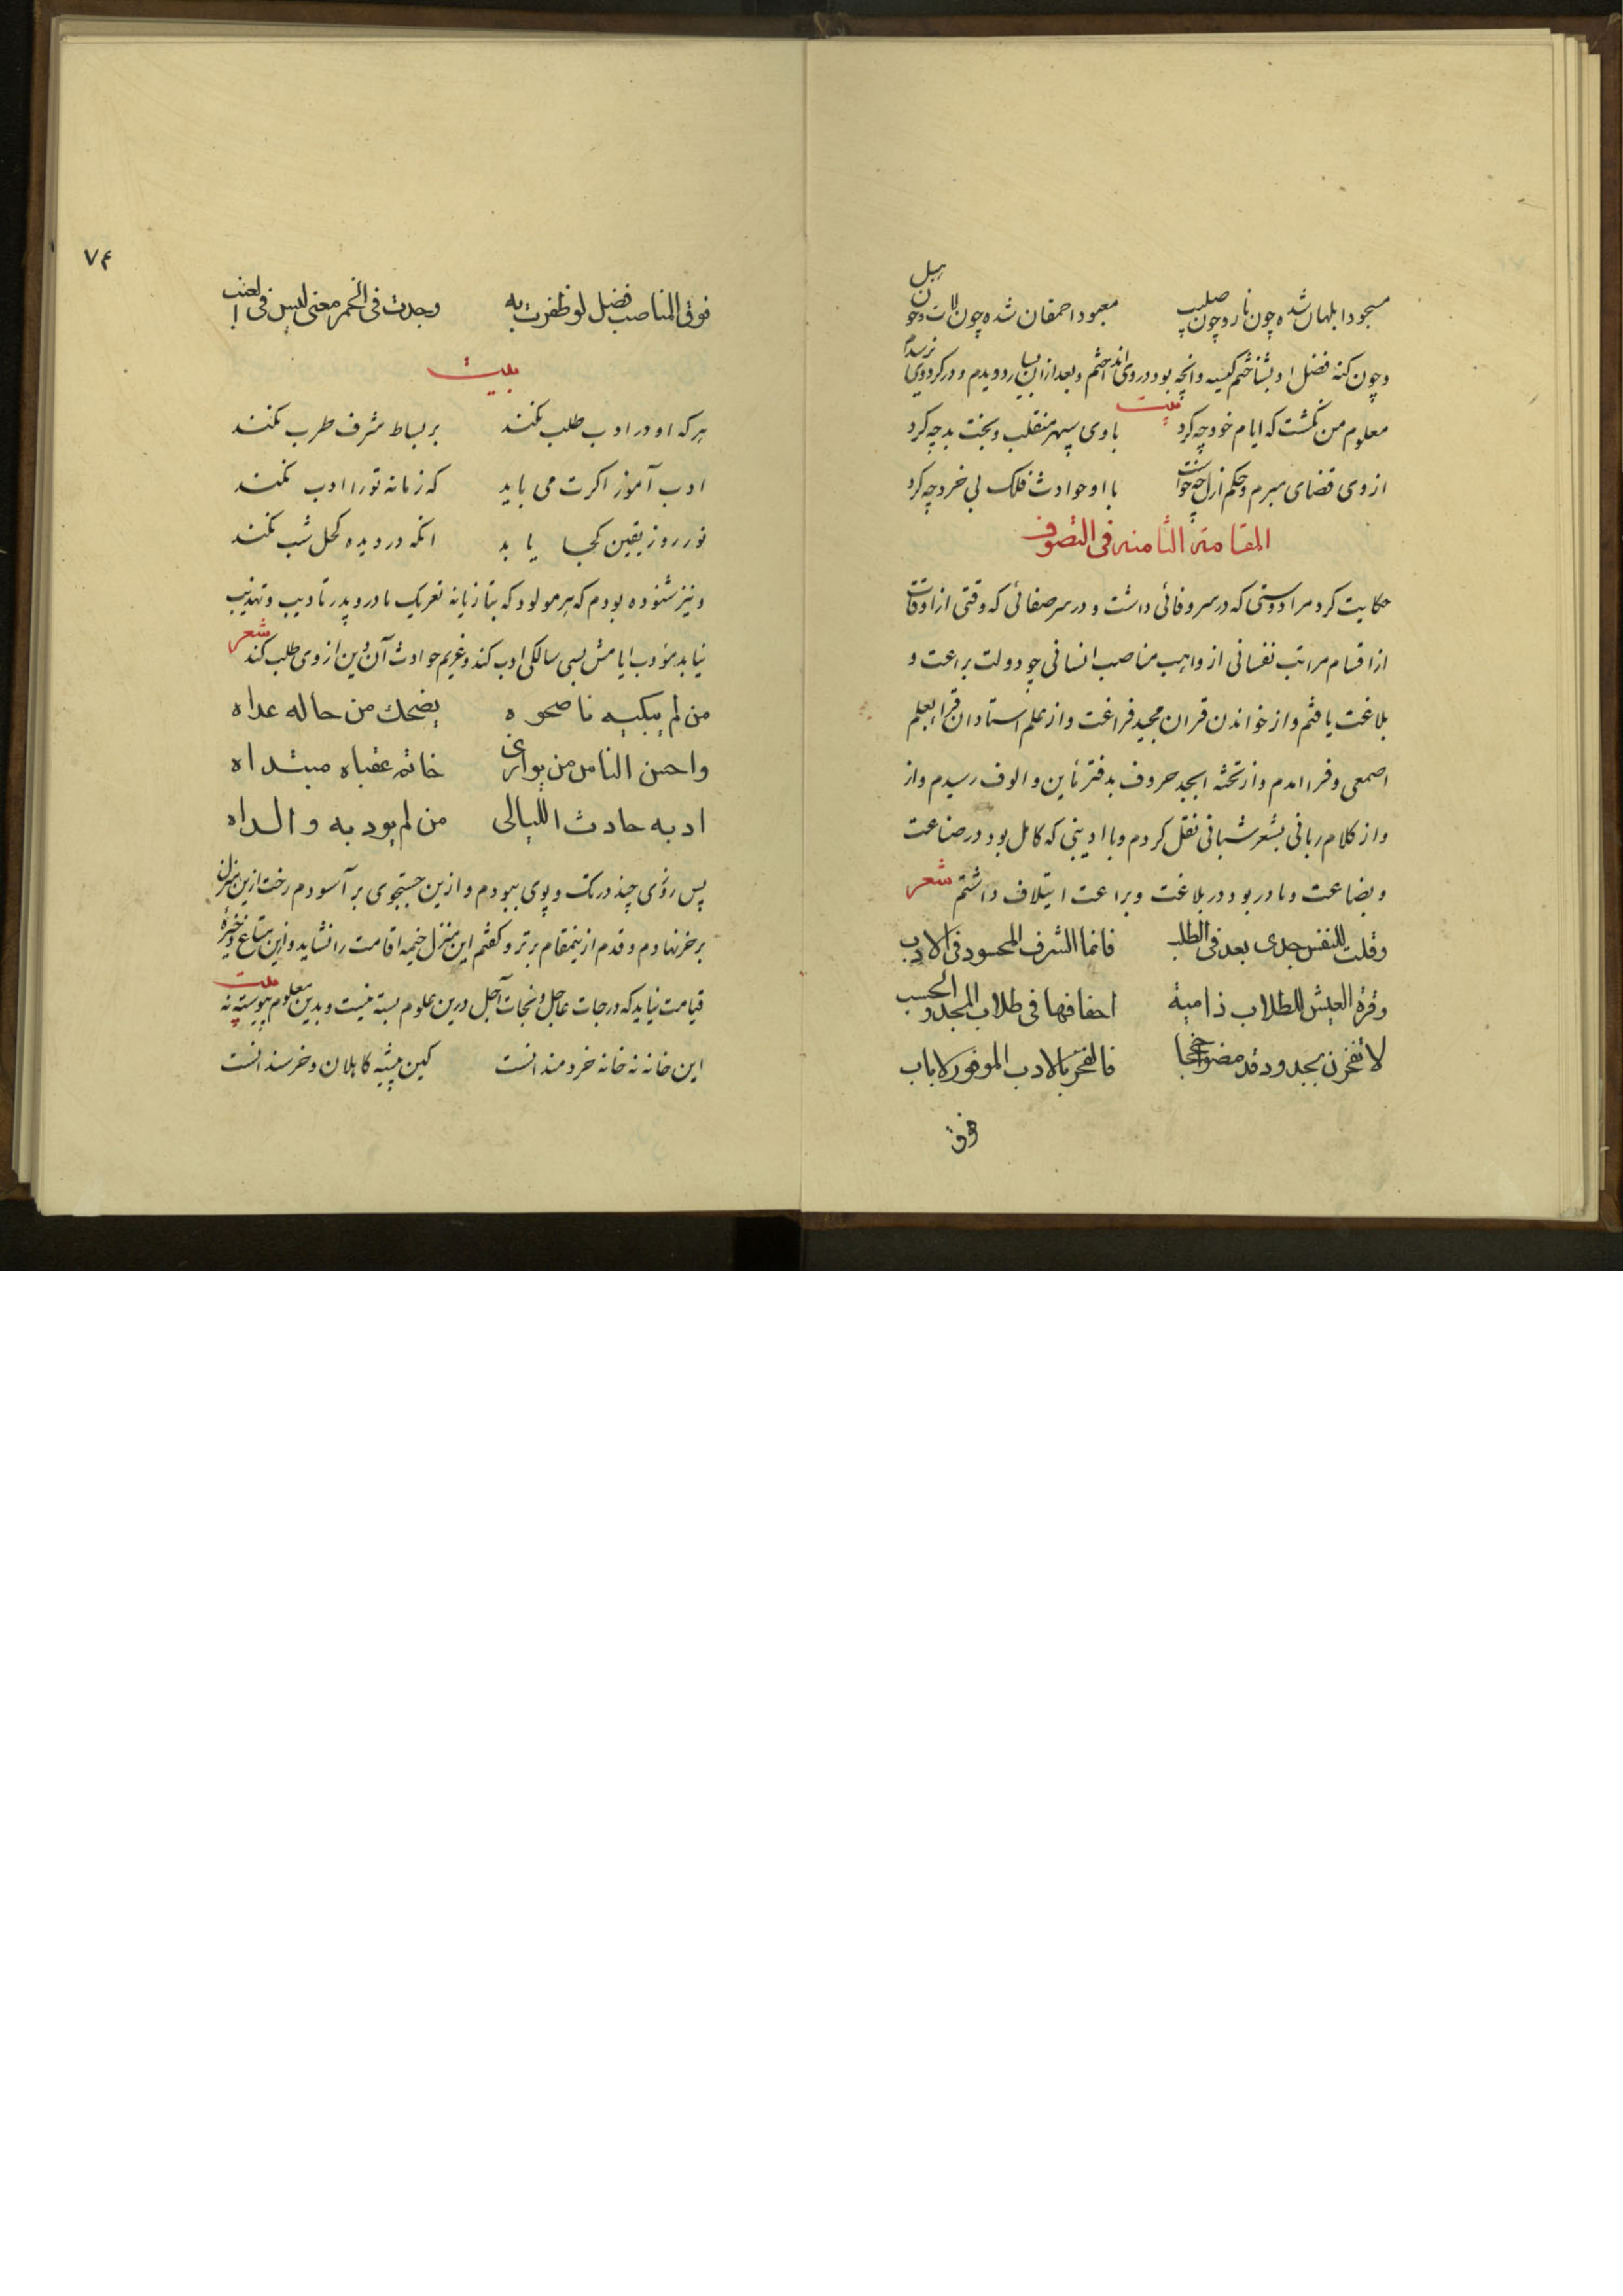 مسجود ابلهان شده چون نار و چون صلیب معبود احمقان شده چون لات و چون هبل
و چون کنه فضل او بشناختم کیسه و انچه بود در وی انداختم و بعد از ان بسیار دویدم و در کرد وی نرسیدم
بیت
معلوم من نکشت که ایام خود چه کرد با وی سپهر منقلب و بخت بد چه کرد
از وی قضای مبرم و حکم ازل چه خواست با او حوادث فلک بی خرد چه کرد
المقامة الثامنه فی التصوف
حکایت کرد مرا دوستی که در سر وفائی داشت و در سر صفائی که وقتی از اوقات
از اقسام مراتب نفسانی از واهب مناصب انسانی چو دولت براعت و
بلاغت یافتم و از خواندن قران مجید فراغت و از علم استادان قرا بعلم
اصمعی و فرا امدم و از تخته ابجد حروف بدفتر مأین و الوف رسیدم و از
و از کلام ربانی بشعر شبانی نقل کردم و با ادیبی که کامل بود در صناعت
و بضاعت و نادر بود در بلاغت و براعت ایتلاف داشتم شعر
وقلت للنفس جدی بعد فی الطلب فانما الشرف المحسود فی الادب
وفرة العیش للطلاب ذامیة اخفافها فی طلاب المجد والحسب
لا تفخرن بجدود قد مضوا حججا فالفخر بالادب الموفور لا باب
فوق
۷۴
فوق المناصب فضل لو ظفرت به وجدت فی الخمر معنی لیس فی العنب
بیت
هر که او در ادب طلب نکند بر بساط شرف طرب نکند
ادب آموز اکرت می باید که زمانه تورا ادب نکند
نور روز یقین کجا یابد انکه در دیده کحل شب نکند
و نیز شنوده بودم که هر مولود که بتازیانه تعریک مادر و پدر تادیب و تهذیب
نیابد مؤدب ایامش بسی سالکی ادب کند و غریم حوادث آن دین از وی طلب کند شعر
من لم یبکیه ناصحوه یضحک من حاله عداه
واحسن الناس من یوازی خاتم عقباه مبتداه
ادبه حادث اللیالی من لم یودبه والداه
پس روزی چند در تک و پوی ببودم و ازین جستجوی بر آسودم رخت ازین منزل
بر خر نهادم و قدم ازینمقام برتر و کفتم این منزل خیمه اقامت را نشاید و این متاع ذخیره
قیامت نیاید که درجات عاجل و نجات آجل درین علوم بسته نیست و بدین معلوم پیوسته نه بیت
این خانه نه خانه خردمندانست کین پیشه کاهلان و خرسندانست